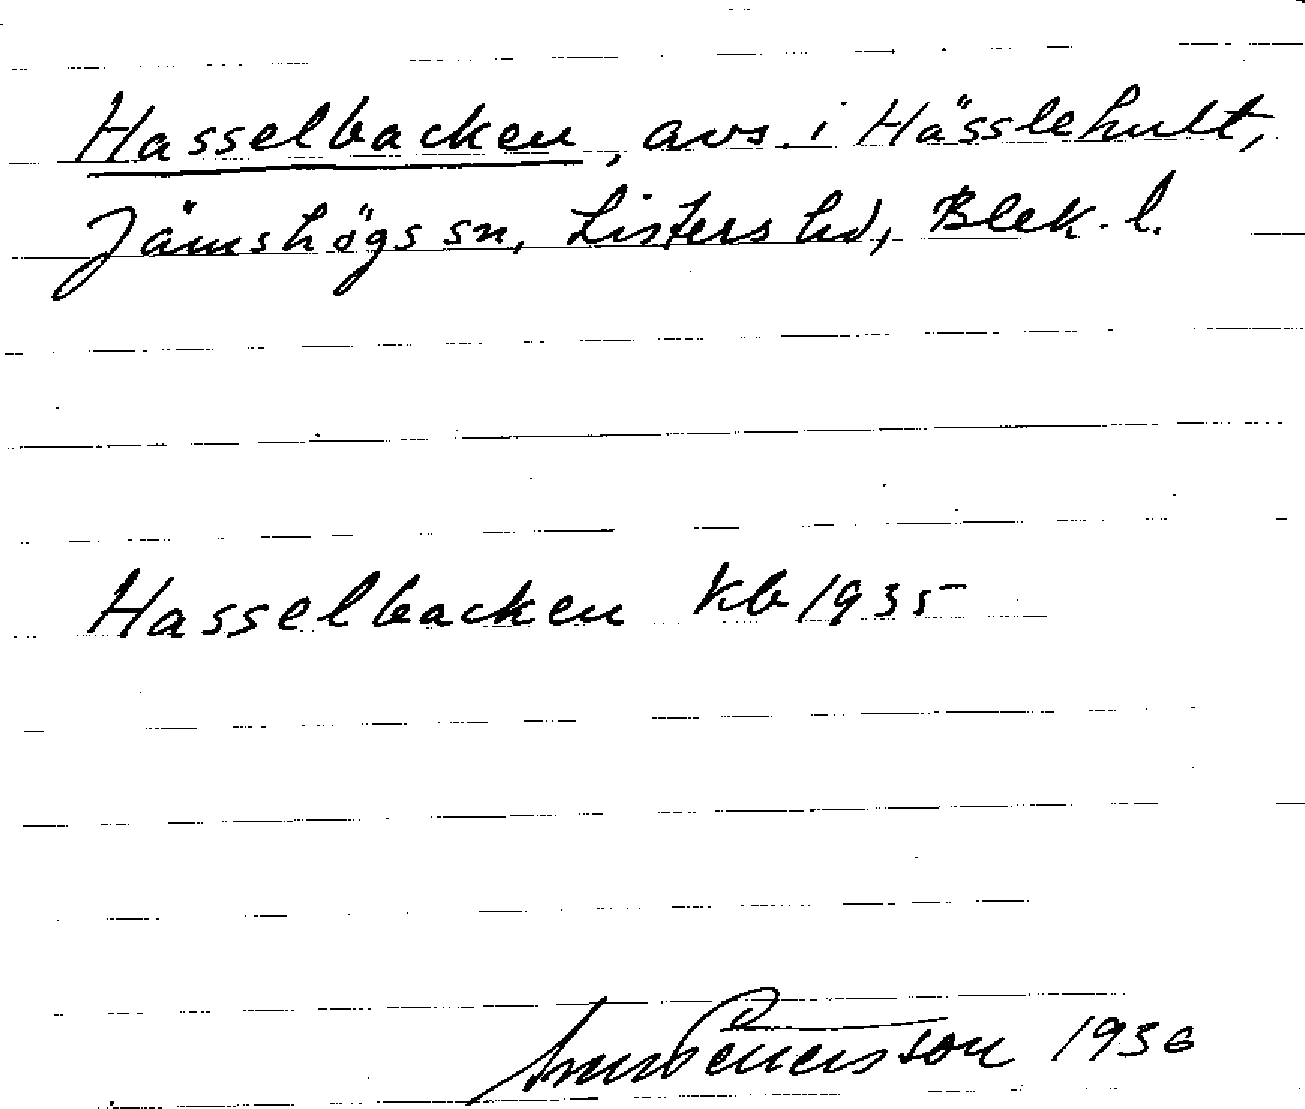 Hasselbacken, avs. i Hässlehult,
Jämshögs sn, Listers hd, Blek. l.
Hasselbacken kb 1935
1936